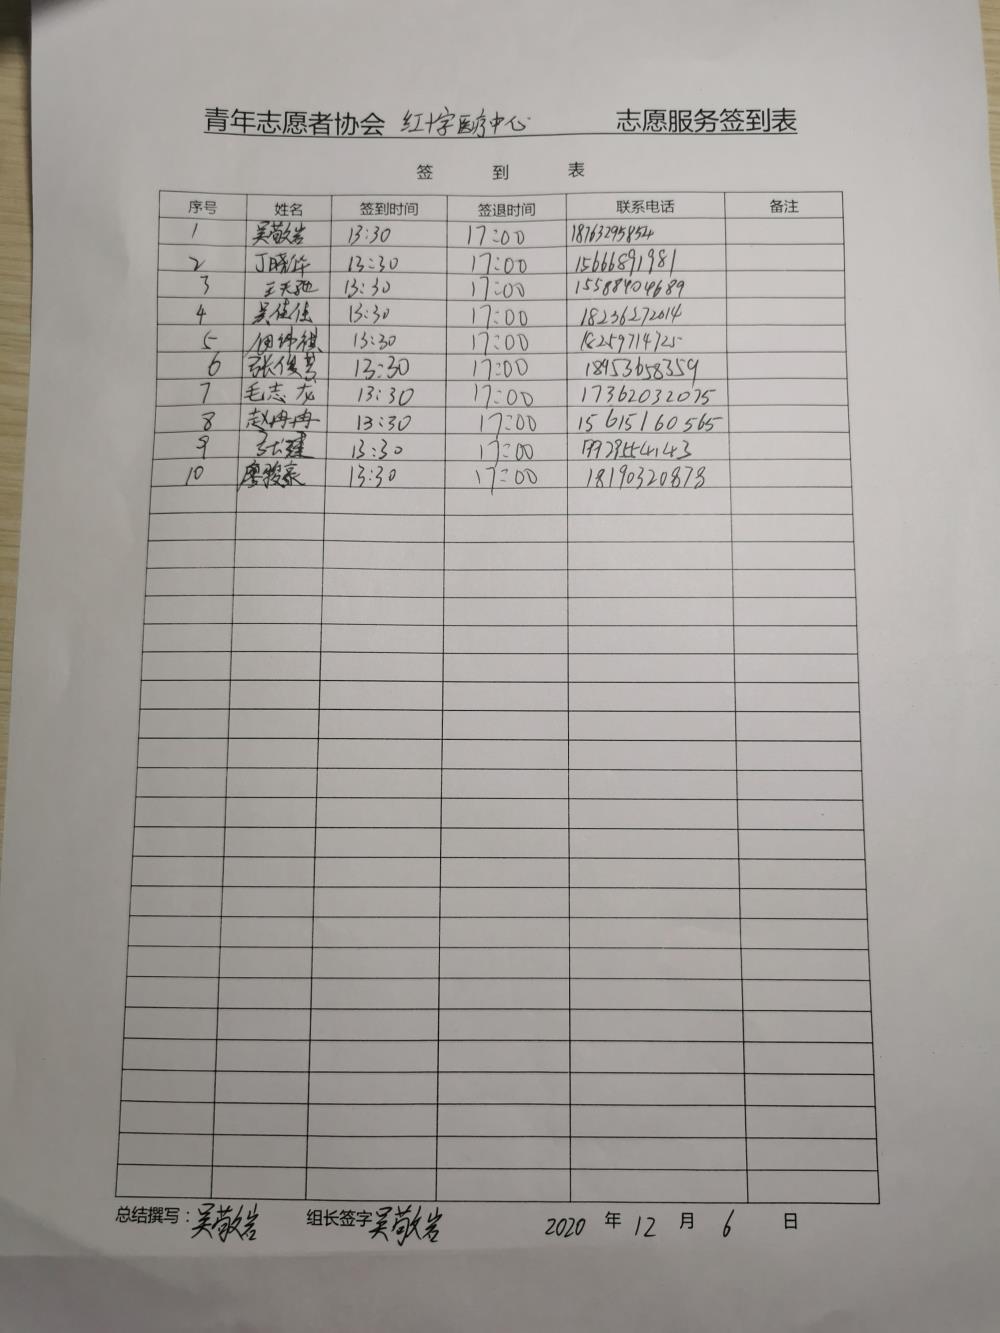 青年志愿者协会 红十字医疗中心 志愿服务签到表
签 到 表
序号 姓名 签到时间 签退时间 联系电话 备注
1 吴敬岩 13:30 17:00 18763295854
2 丁晓华 13:30 17:00 15666891981
3 王天驰 13:30 17:00 15588404689
4 吴佳佳 13:30 17:00 18236272014
5 13:30 17:00 18259714725
6 张俊慧 13:30 17:00 18953658359
7 毛志龙 13:30 17:00 17362032075
8 赵冉冉 13:30 17:00 15615160565
9 张建 13:30 17:00 19928554143
10 廖骏豪 13:30 17:00 18190320873
总结撰写：吴敬岩 组长签字 吴敬岩 2020 年 12 月 6 日